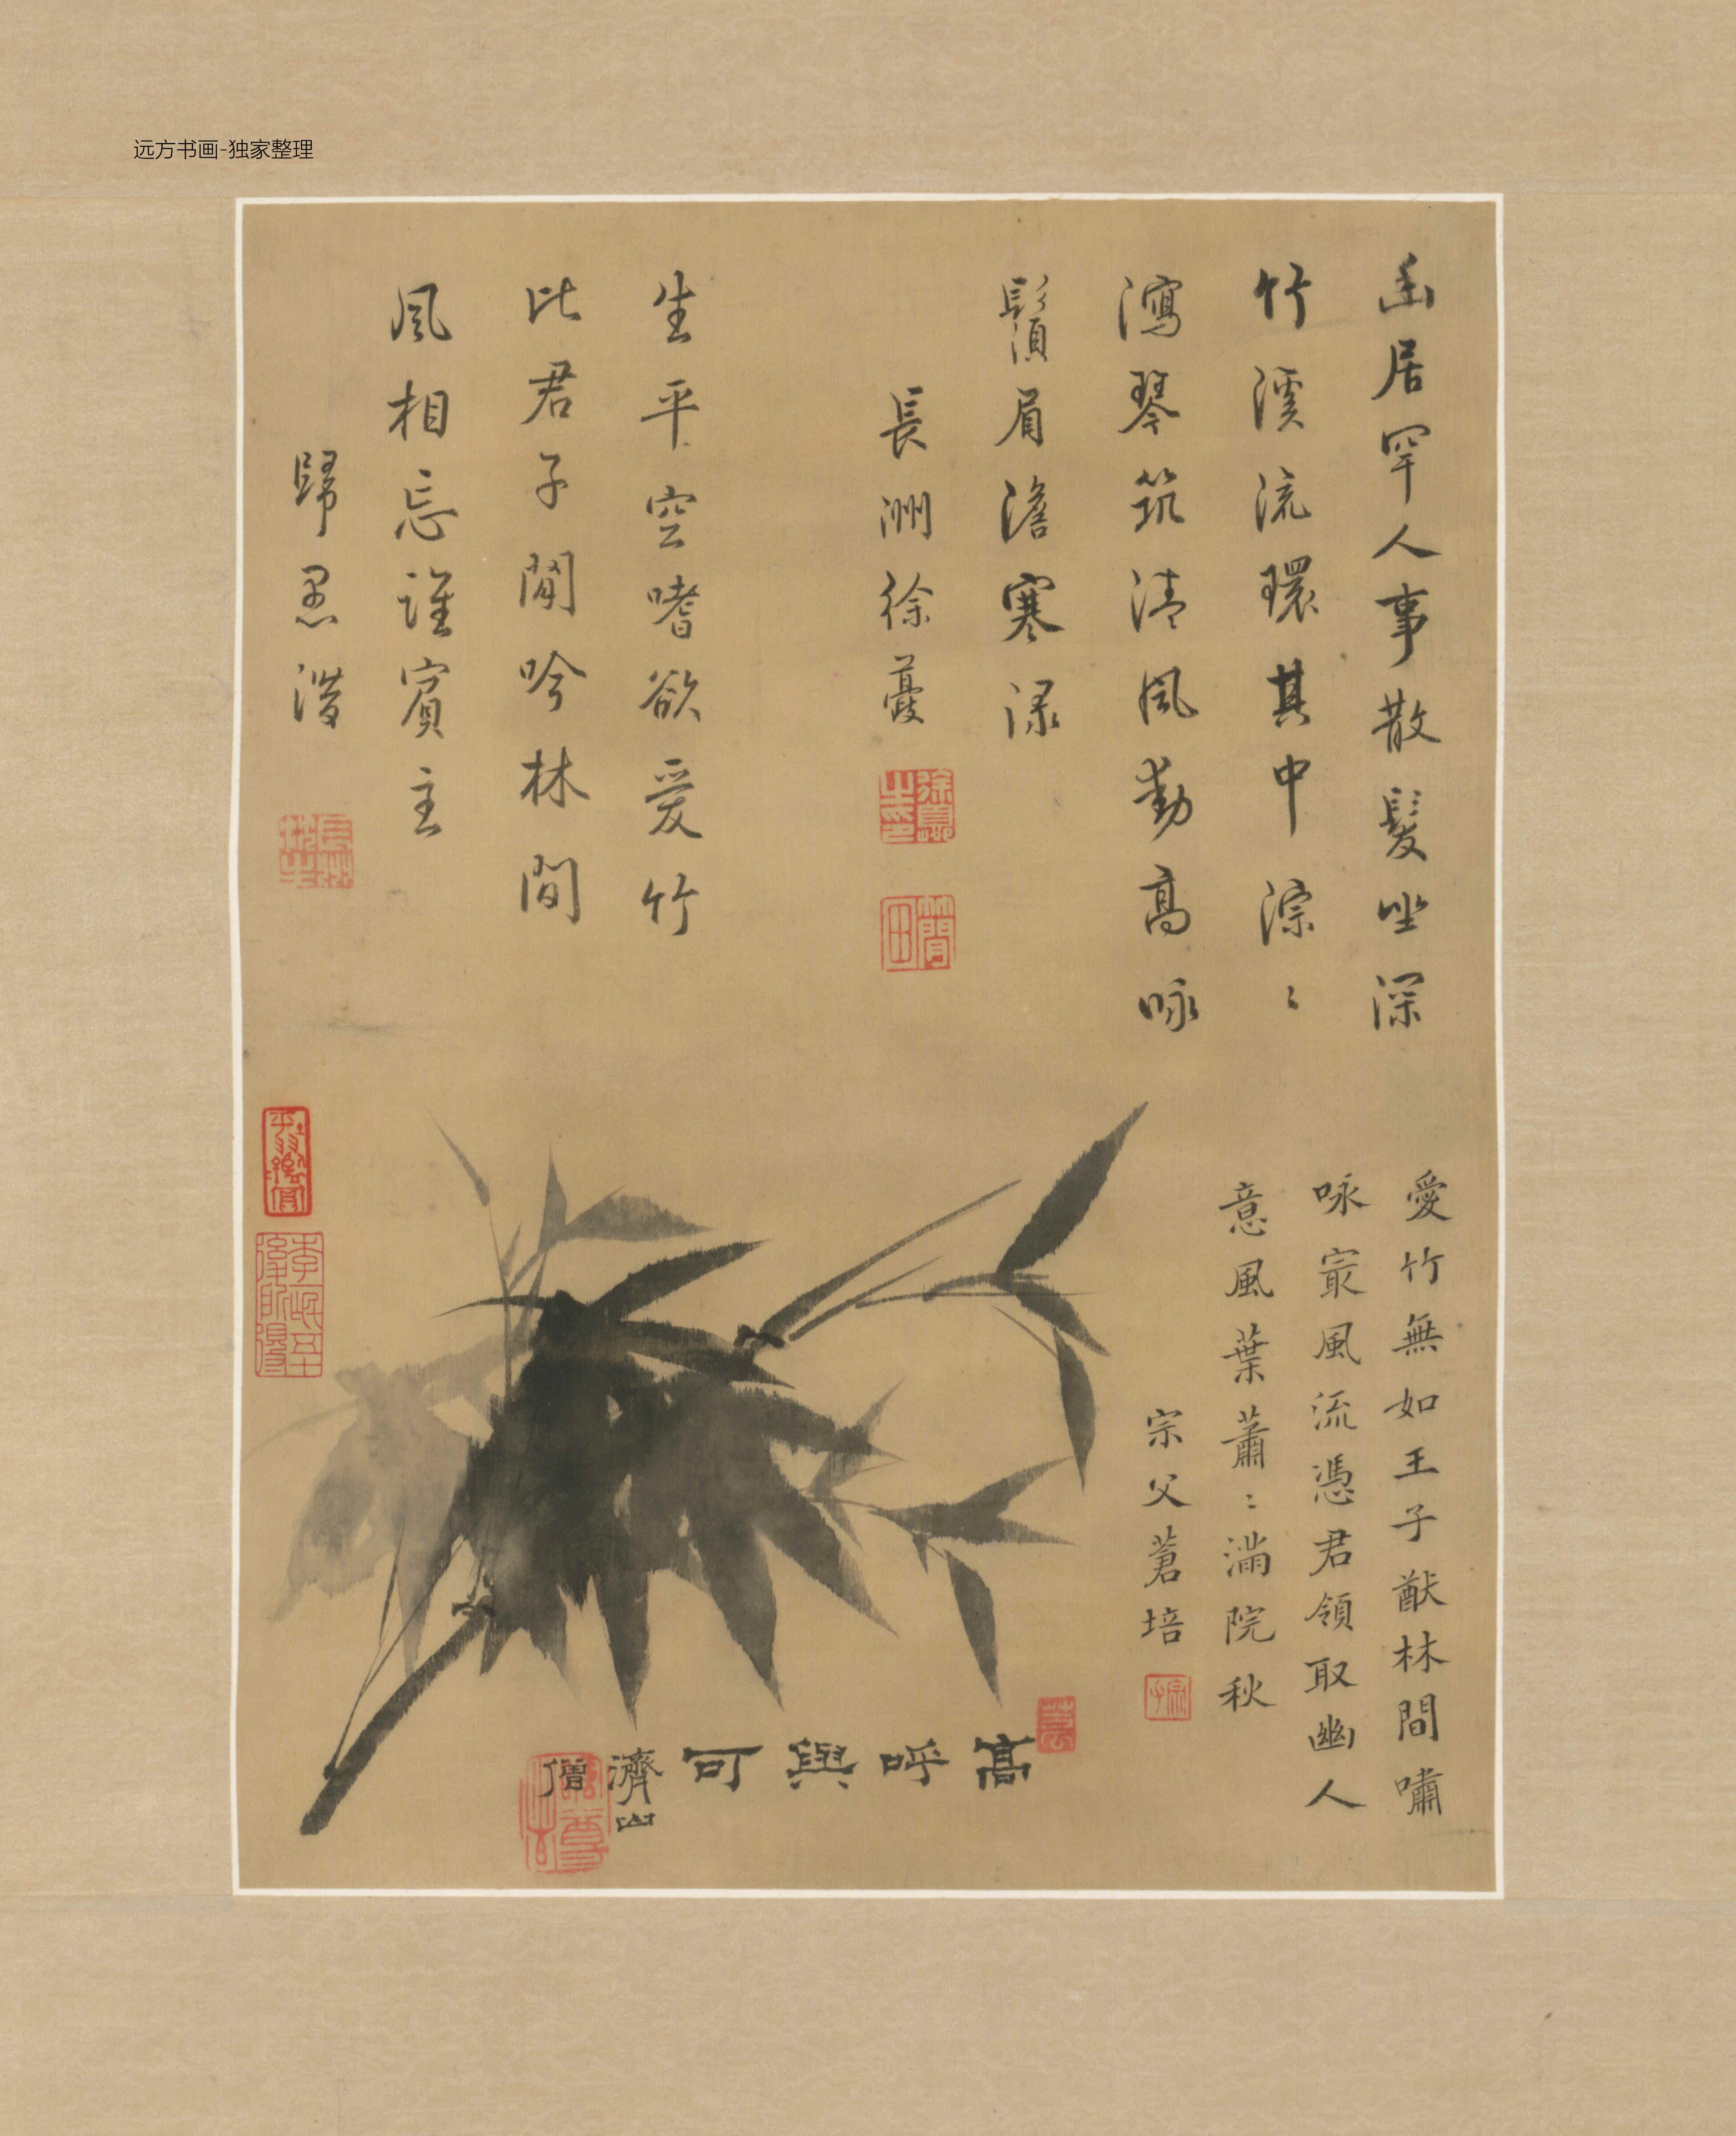 远方书画-独家整理
幽居罕人事散髮坐深
竹溪流環其中淙〻
瀉琴筑清風動高咏
鬚眉澹寒淥
長洲徐
生平空嗜欲愛竹
比君子閒吟林間
風相忘誰賓主
歸愚潛
愛竹無如王子猷林間嘯
咏寂風流憑君領取幽人
意風葉蕭〻滿院秋
宗父蒼培
高呼與可
濟山僧